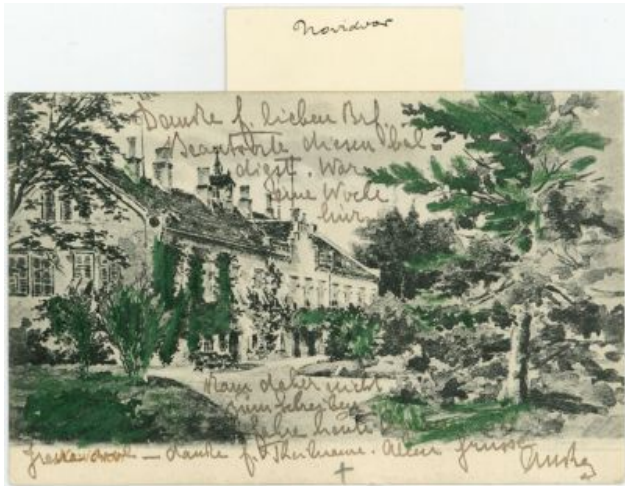 Novidvor
Danke f. lieben Brf.
Beantworte diesen bal-
digst. War
eine Woche
hier
Kam daher nicht
zum Schreiben
heute
— danke f. Theilname. Allen Grüsse